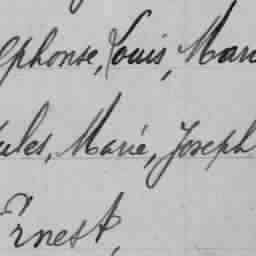 lphonse, Louis, Mari
ules, Marie, Joseph
Ernest,